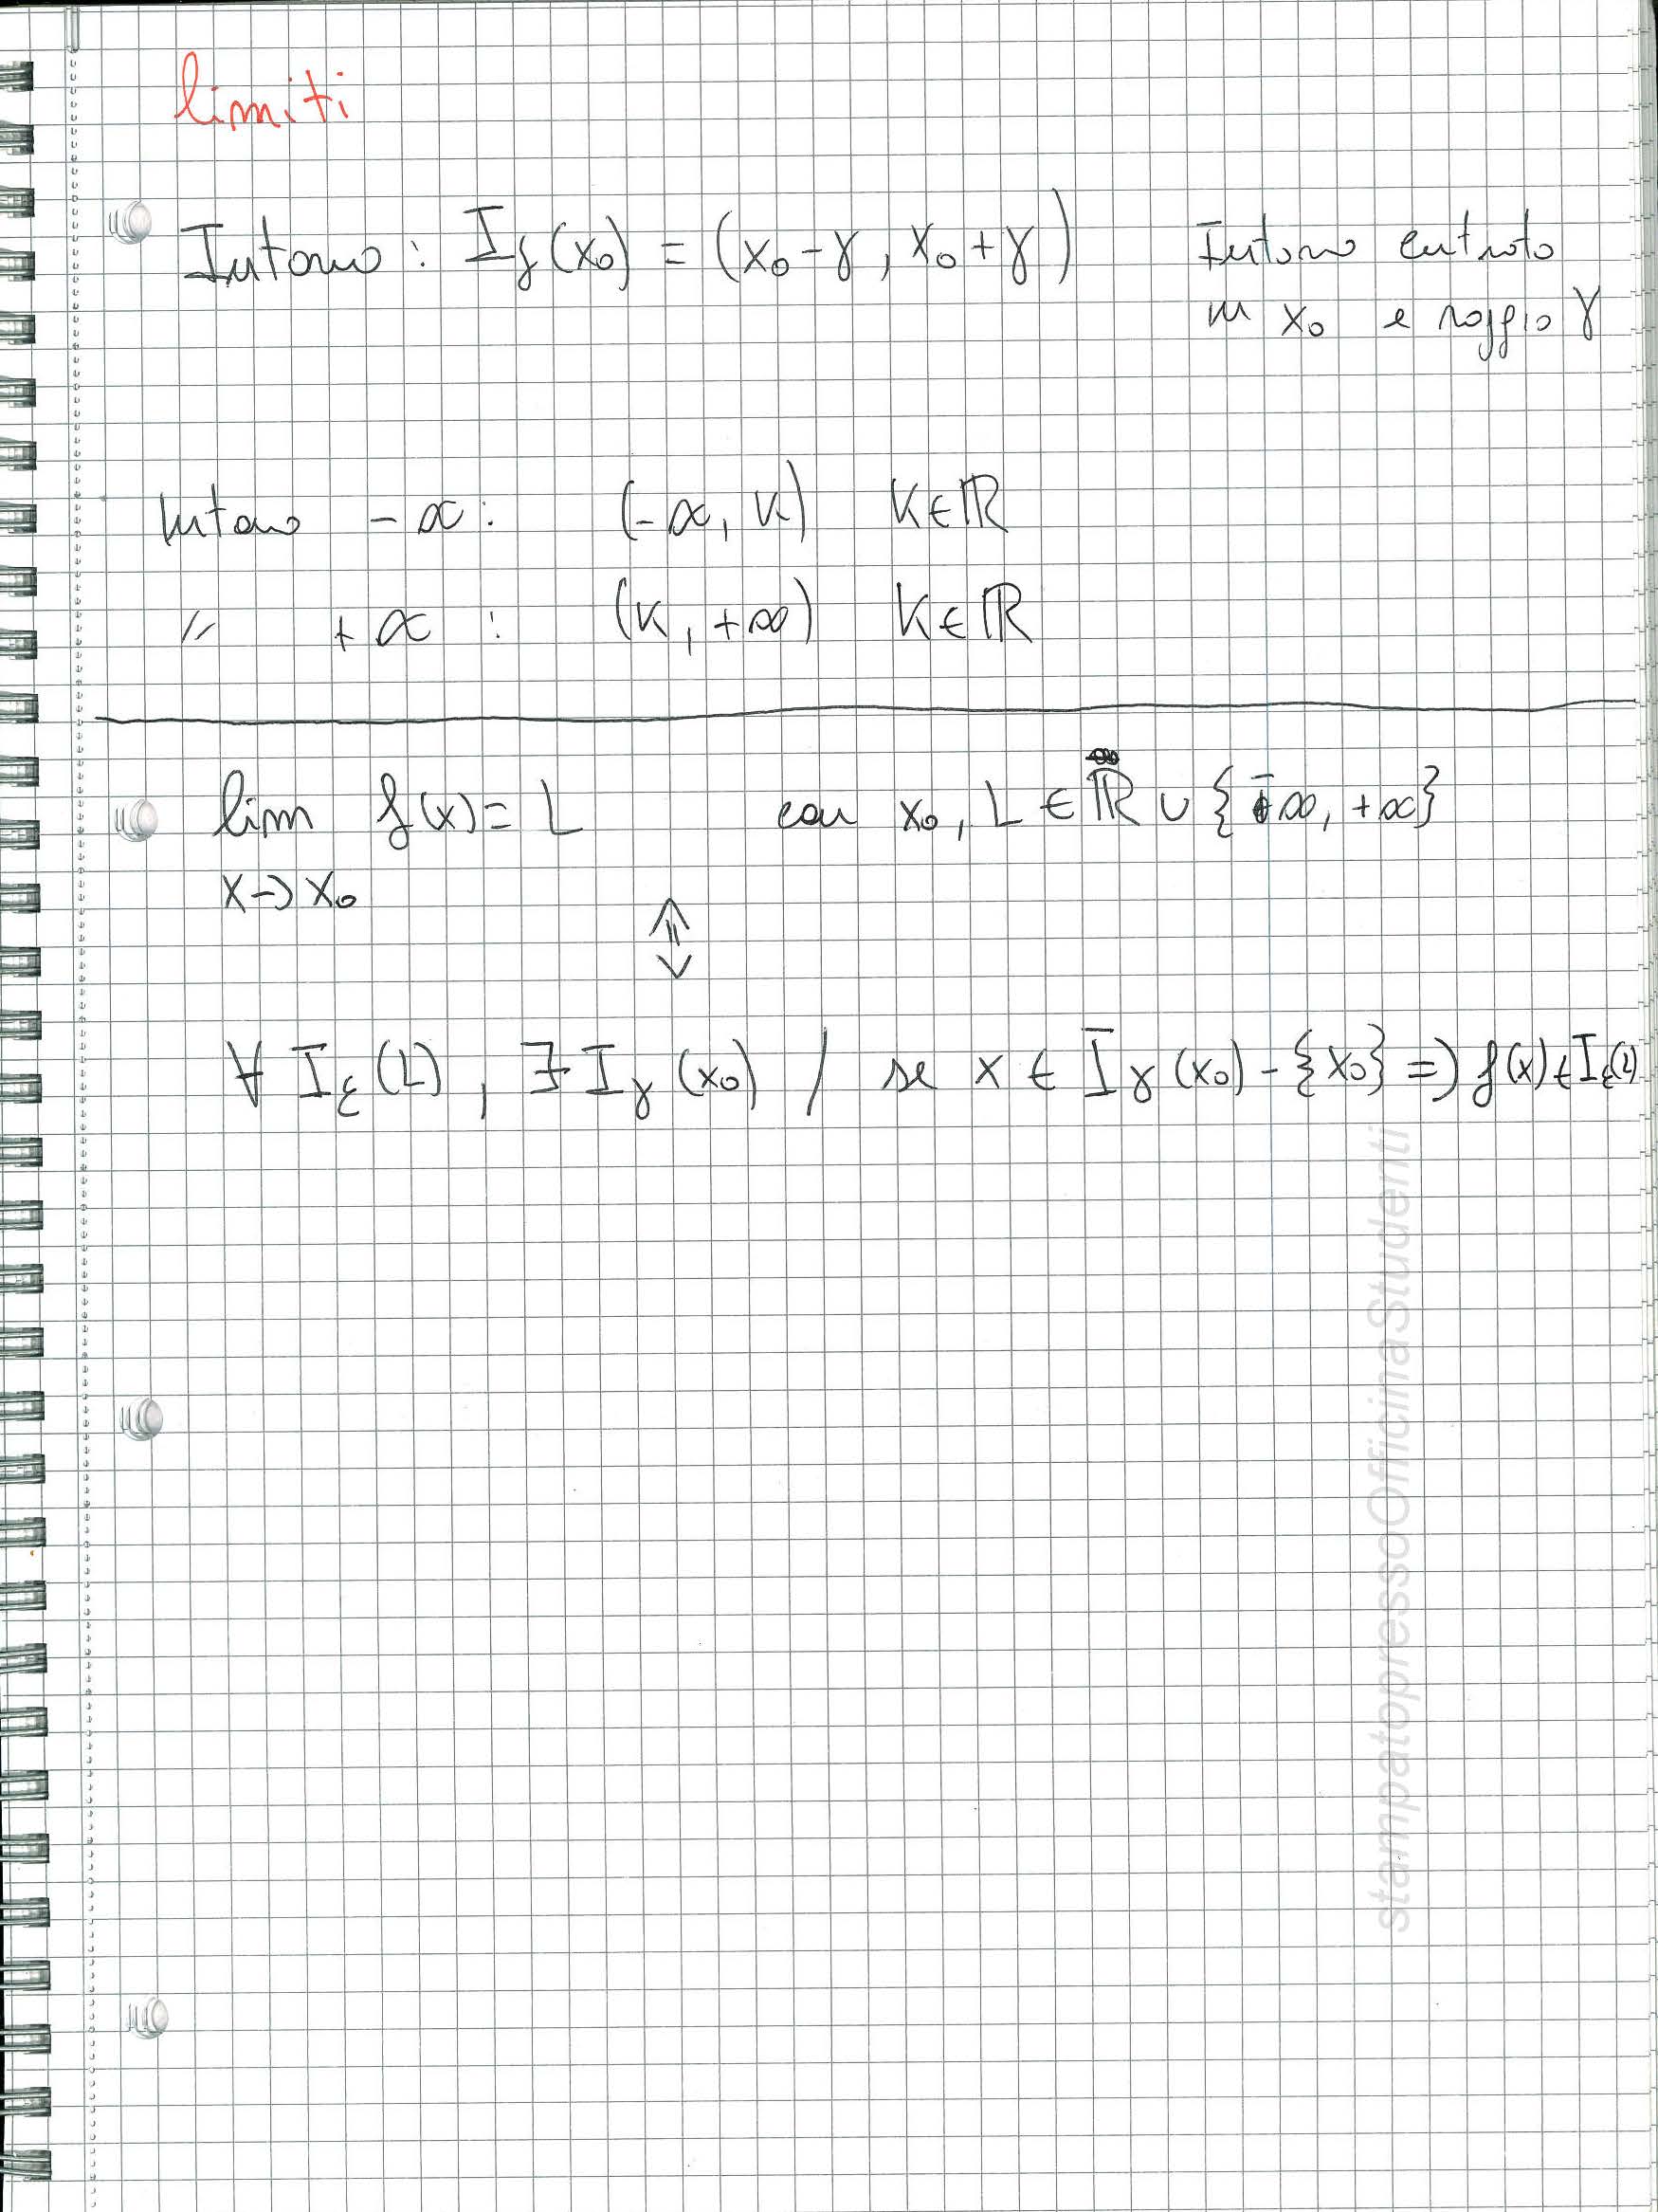 limiti
Intorno : I_γ(x₀) = (x₀-γ, x₀+γ) Intorno centrato
in x₀ e raggio γ
Intorno -∞ : (-∞, K) K∈ℝ
〃 +∞ : (K, +∞) K∈ℝ
lim f(x) = L con x₀, L ∈ ℝ ∪ {-∞, +∞}
x→x₀
⇕
∀ I_ε(L), ∃ I_γ(x₀) / se x ∈ I_γ(x₀)-{x₀} ⇒ f(x) ∈ I_ε(L)
stampatopressoOfficinaStudenti